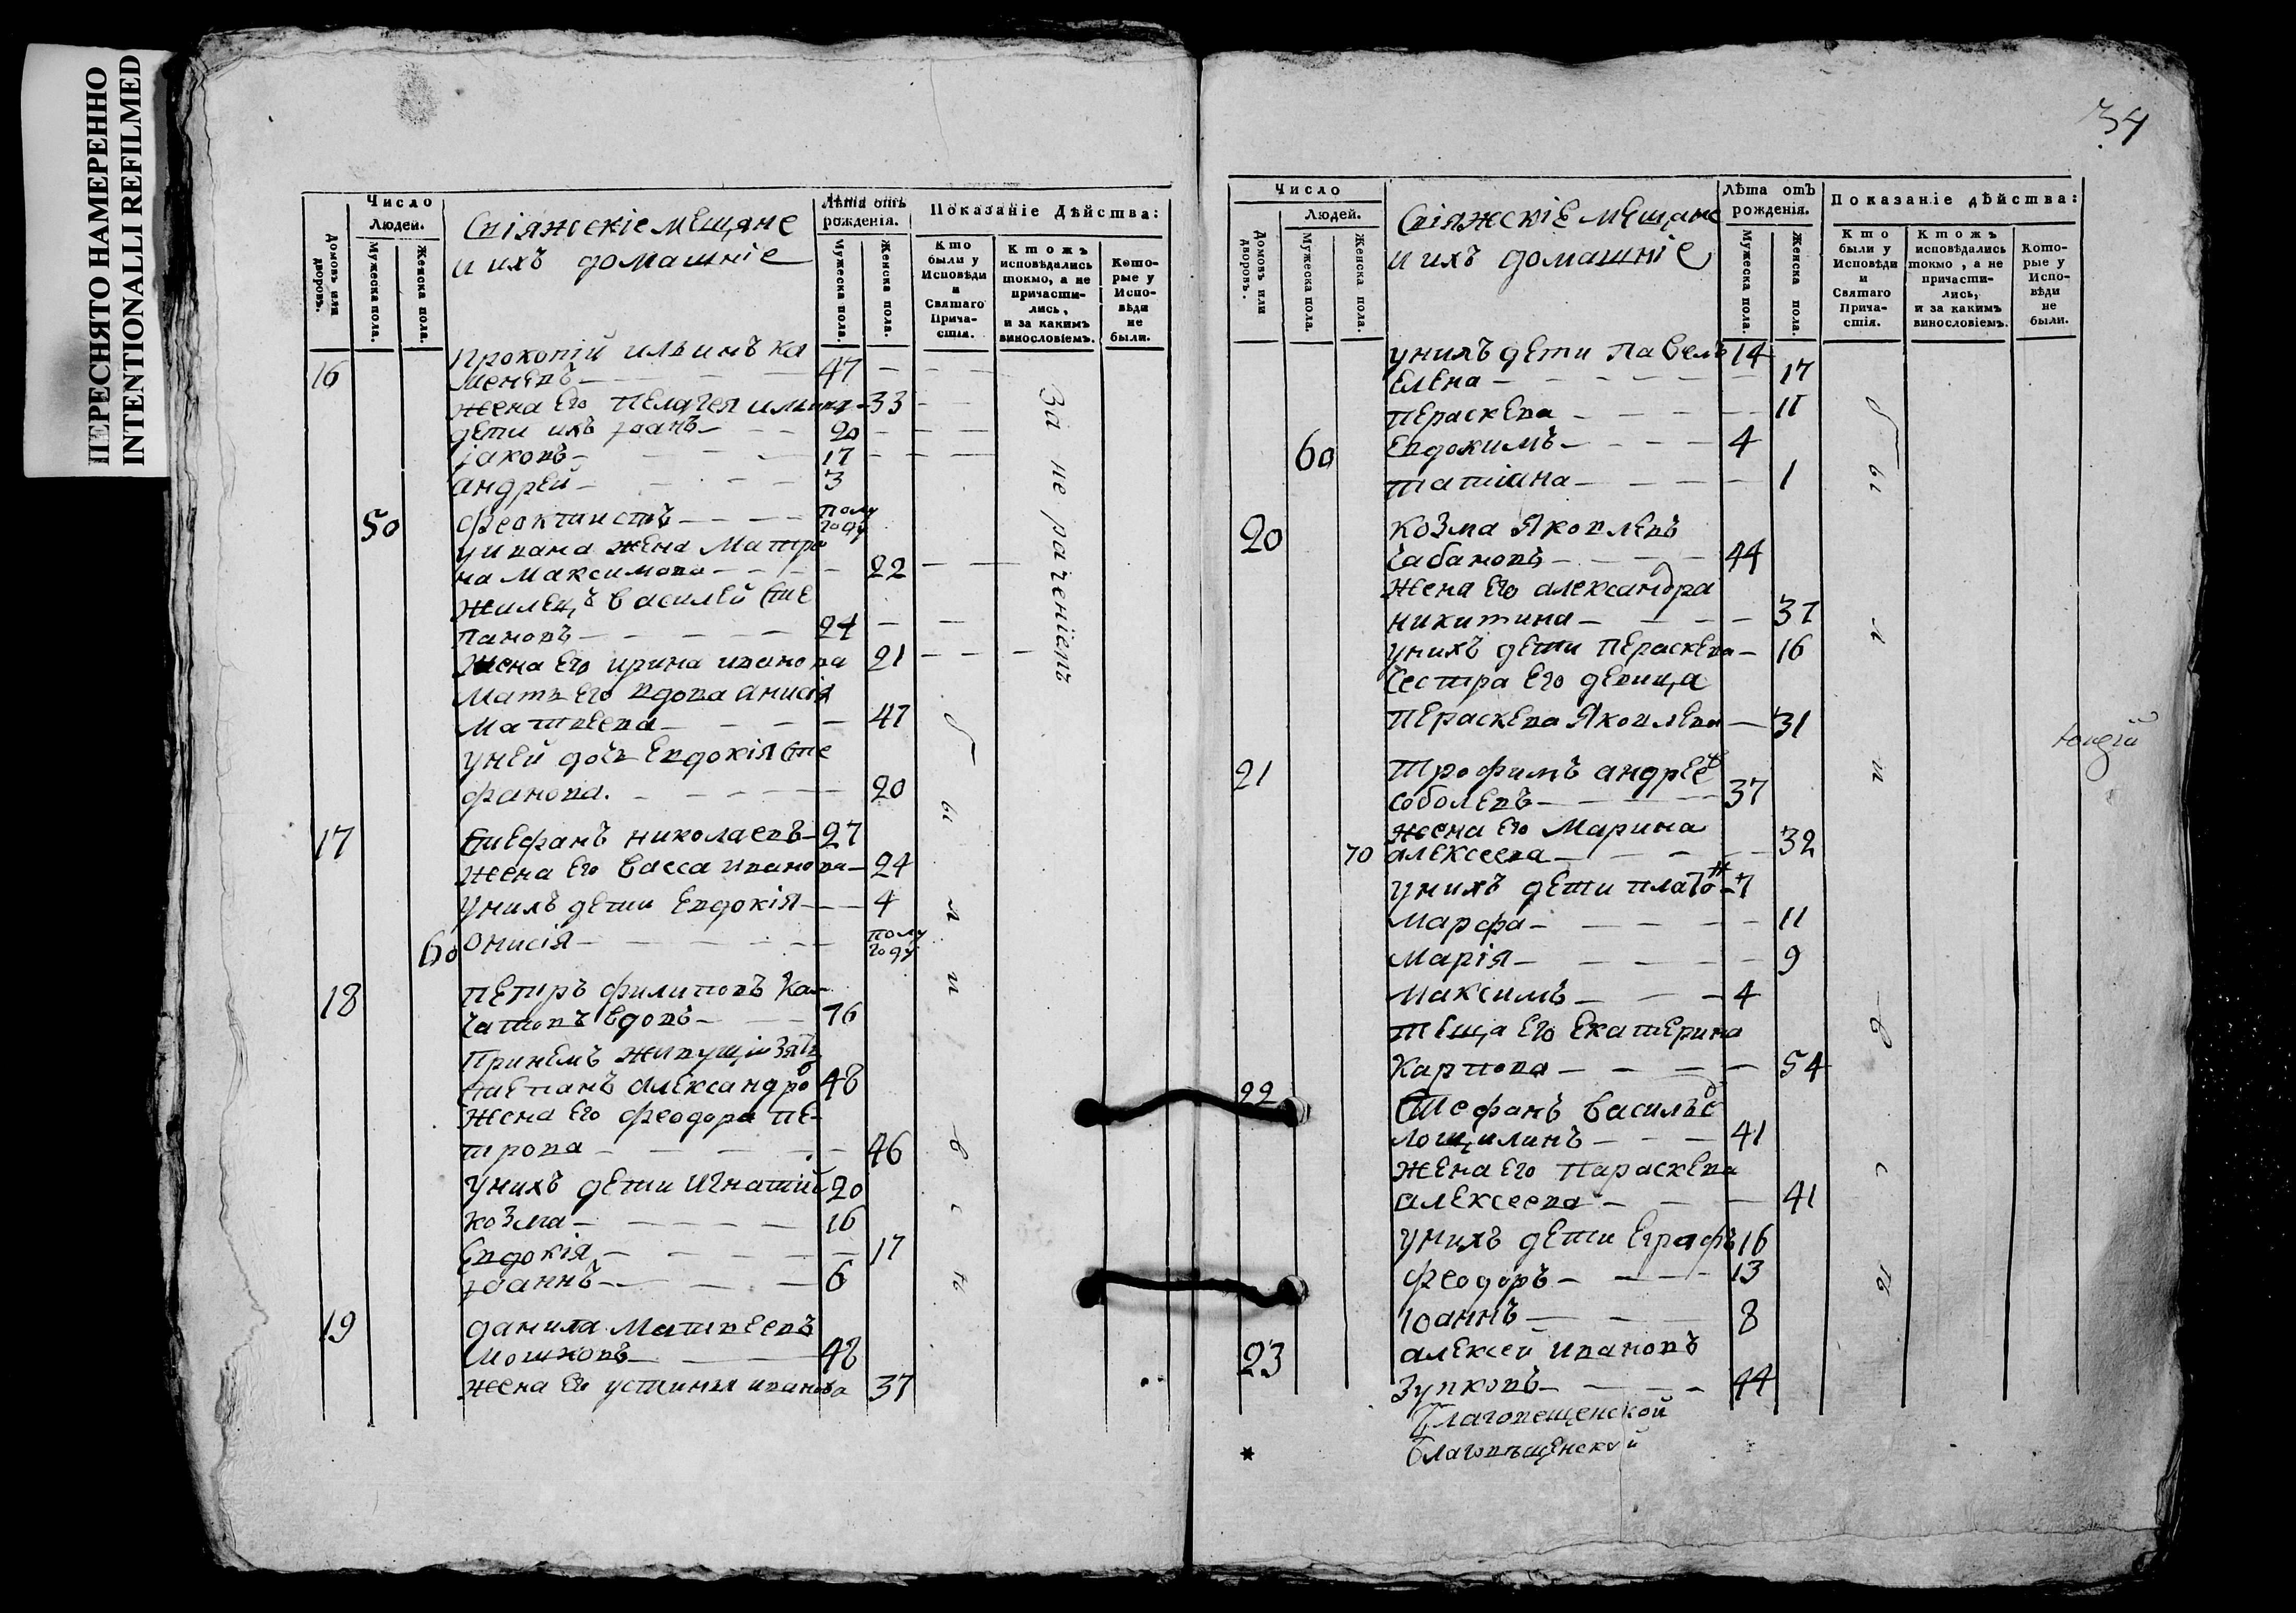 ПЕРЕСНЯТО НАМЕРЕННО
INTENTIONALLI REFILMED
Число
Людей.
Домовъ или дворовъ.
Мужеска пола.
Женска пола.
Свіяжскіе мещане
и ихъ домашніе
Лѣта отъ рожденія.
Мужеска пола.
Женска пола.
Показаніе Дѣйства:
Кто были у Исповѣди и Святаго Прича-стія.
Ктожъ исповѣдались токмо, а не причасти-лись, и за какимъ винословіемъ.
Кото-рые у Испо-вѣди не были.
16 Прокопій ильинъ Ка
меневъ — 47
жена Его Пелагея ильина — 33
дети ихъ Іоанъ — 20
Іаковъ — 17
андрей — 3
50 феоктистъ — полу году
у ивана жена Матро
на Максимова — 22
жилецъ Василей Сте
пановъ — 24
жена Его ирина иванова 21
Мать Его вдова анисія
Матвеева — 47
у ней дочь Евдокія Сте
фанова. — 20
17 Стефанъ николаевъ — 27
жена Его Васса иванова — 24
у нихъ дети Евдокія — 4
60 Онисія — полу году
18 Петръ филиповъ Ка-
чатовъ вдовъ — 76
При немъ живущій зять
Степанъ александро в 48
жена Его феодора Пе-
трова — 46
у нихъ дети Игнатій 20
Козма — 16
Евдокія — 17
Іоаннъ — 6
19 данила Матвеевъ
Мошковъ — 48
жена Его устинья иванова 37
За не раченіемъ
б ы л и в с ѣ
34
Число
Людей.
Домовъ или дворовъ.
Мужеска пола.
Женска пола.
Свіяжскіе мещане
и ихъ домашніе
Лѣта отъ рожденія.
Мужеска пола.
Женска пола.
Показаніе дѣйства:
Кто были у Исповѣди и Святаго Прича-стія.
Ктожъ исповѣдались токмо, а не причасти-лись, и за какимъ винословіемъ.
Кото-рые у Испо-вѣди не были.
у нихъ дети Павелъ 14
Елена — 17
Пераскева — 11
60 Евдокимъ — 4
татіана — 1
20 Козма Яковлевъ
Чабановъ — 44
жена Его александра
никитина — 37
у нихъ дети Пераскева — 16
Сестра Его девица
Пераскева Яковлева — 31
21 трофимъ андрее в
соболевъ — 37
жена Его Марина
70 алексеева — 32
у нихъ дети плато н — 7
Марфа — 11
Марія — 9
Максимъ — 4
теща Его Екатерина
Карпова — 54
22 Стефанъ Василье в
лощилинъ — 41
жена Его Параскева
алексеева — 41
у нихъ дети Еграфъ 16
феодоръ — 13
Іоаннъ — 8
23 алексей ивановъ
Зупковъ — 44
Благовещенской
* Благовѣщенской
б ы л и в с ѣ